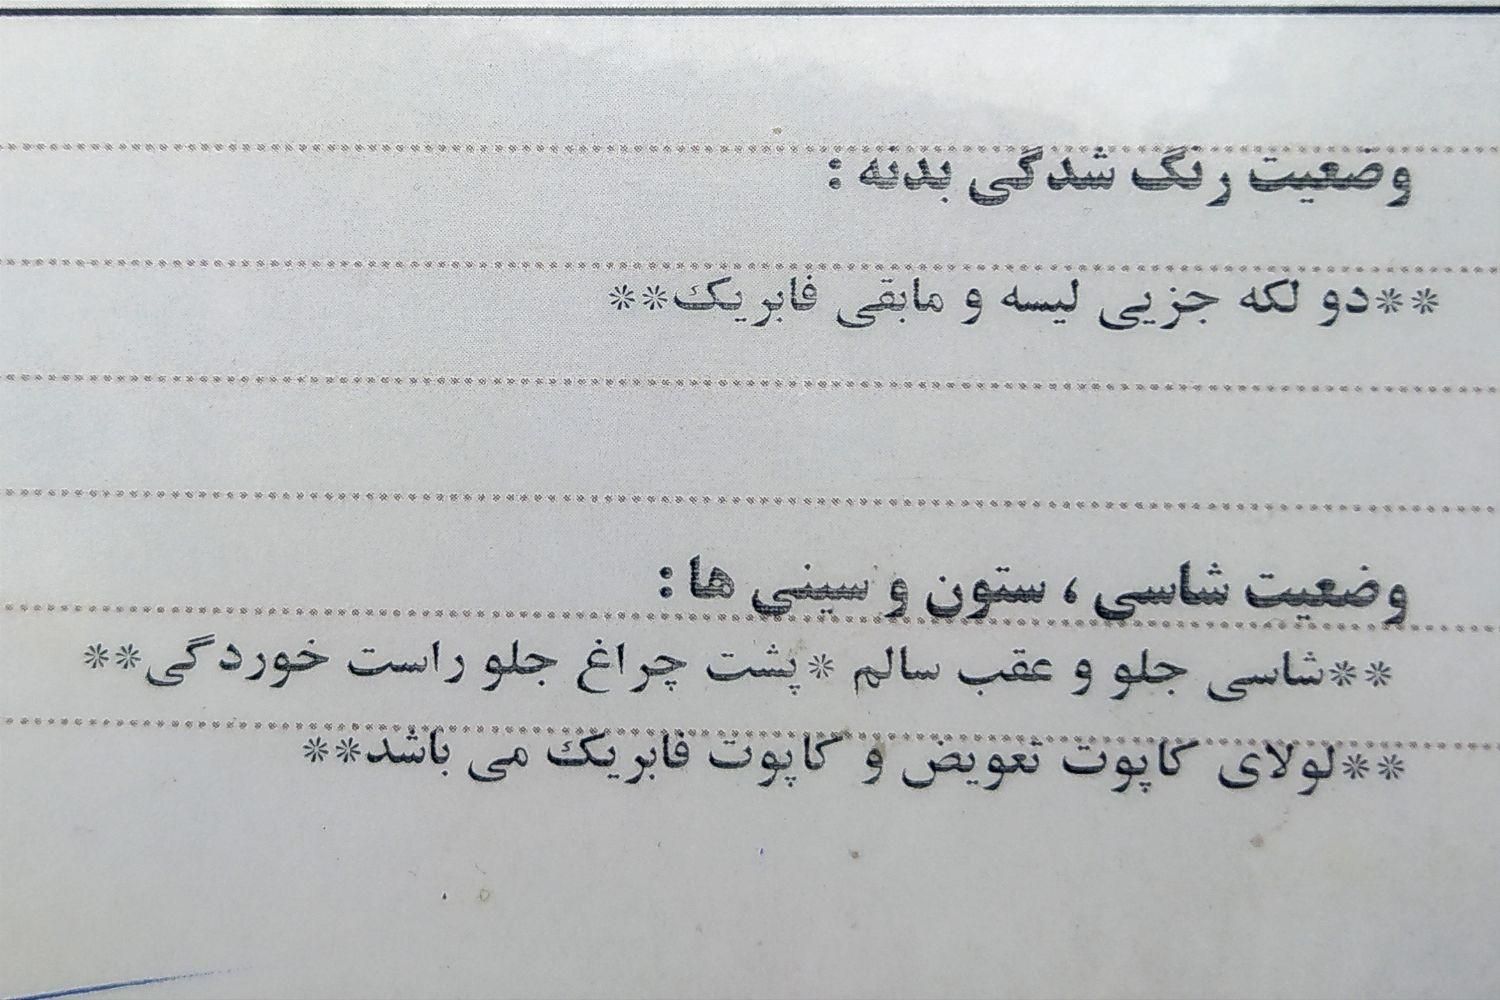 وضعیت رنگ شدگی بدنه :
**دو لکه جزیی لیسه و مابقی فابریک**
وضعیت شاسی ، ستون و سینی ها :
**شاسی جلو و عقب سالم *پشت چراغ جلو راست خوردگی**
**لولای کاپوت تعویض و کاپوت فابریک می باشد**